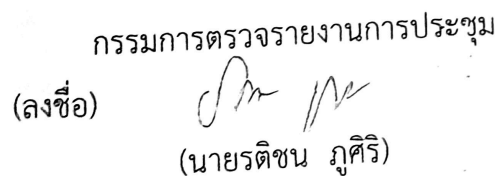 กรรมการตรวจรายงานการประชุม
(ลงชื่อ)
(นายรติชน ภูศิริ)